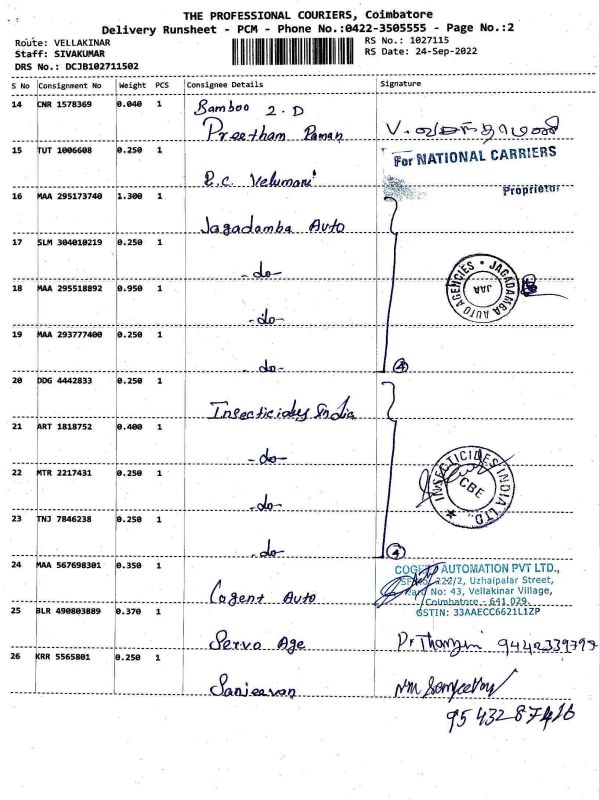 THE PROFESSIONAL COURIERS, Coimbatore
Delivery Runsheet - PCM - Phone No.:0422-3505555 - Page No.:2
Route: VELLAKINAR
RS No.: 1027115
Staff: SIVAKUMAR
RS Date: 24-Sep-2022
DRS No.: DCJB102711502
S No Consignment No Weight PCS Consignee Details Signature
14 CNR 1578369 0.040 1 Bamboo 2.D
Preetham Raman V.
15 TUT 1006608 0.250 1 For NATIONAL CARRIERS
R.C. Velumani Proprietor
16 MAA 295173740 1.300 1
Jagadamba Auto
17 SLM 304010219 0.250 1
-do-
18 MAA 295518892 0.950 1 JAGADAMBA AUTO AGENCIES
-do-
19 MAA 293777400 0.250 1
-do- 4
20 DDG 4442833 0.250 1
Insecticides India
21 ART 1818752 0.400 1
-do-
22 MTR 2217431 0.250 1 INSECTICIDES INDIA LTD.
CBE
-do-
23 TNJ 7846238 0.250 1
-do- 4
24 MAA 567698301 0.350 1 COGENT AUTOMATION PVT LTD.,
222/2, Uzhaipalar Street,
No: 43, Vellakinar Village,
Cogent Auto Coimbatore - 641 029.
25 BLR 490803889 0.370 1 GSTIN: 33AAECC6621L1ZP
Servo Age
26 KRR 5565801 0.250 1
Sanjeevan
95432 87416